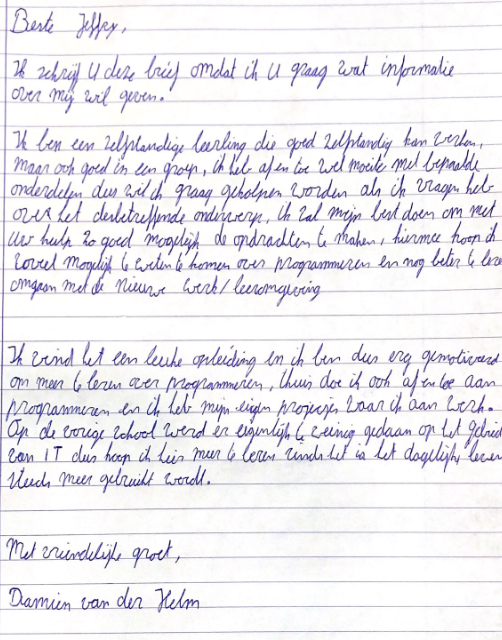 Beste Jeffry,
Ik schrijf U deze brief omdat ik U graag wat informatie
over mij wil geven.
Ik ben een zelfstandige leerling die goed zelfstandig kan werken,
maar ook goed in een groep, ik heb af en toe wel moeite met bepaalde
onderdelen dus wil ik graag geholpen worden als ik vragen heb
over het desbetreffende onderwerp, ik zal mijn best doen om met
Uw hulp zo goed mogelijk de opdrachten te maken, hiermee hoop ik
zoveel mogelijk te weten te komen over programmeren en nog beter te lere
omgaan met de nieuwe werk/leeromgeving
Ik vind het een leuke opleiding en ik ben dus erg gemotiveerd
om meer te leren over programmeren, thuis doe ik ook af en toe aan
programmeren en ik heb mijn eigen projecjes waar ik aan werk.
Op de vorige school werd er eigenlijk te weinig gedaan op het gebied
van IT dus hoop ik hier meer te leren sinds het in het dagelijks leven
steeds meer gebruikt wordt.
Met vriendelijke groet,
Damien van der Helm